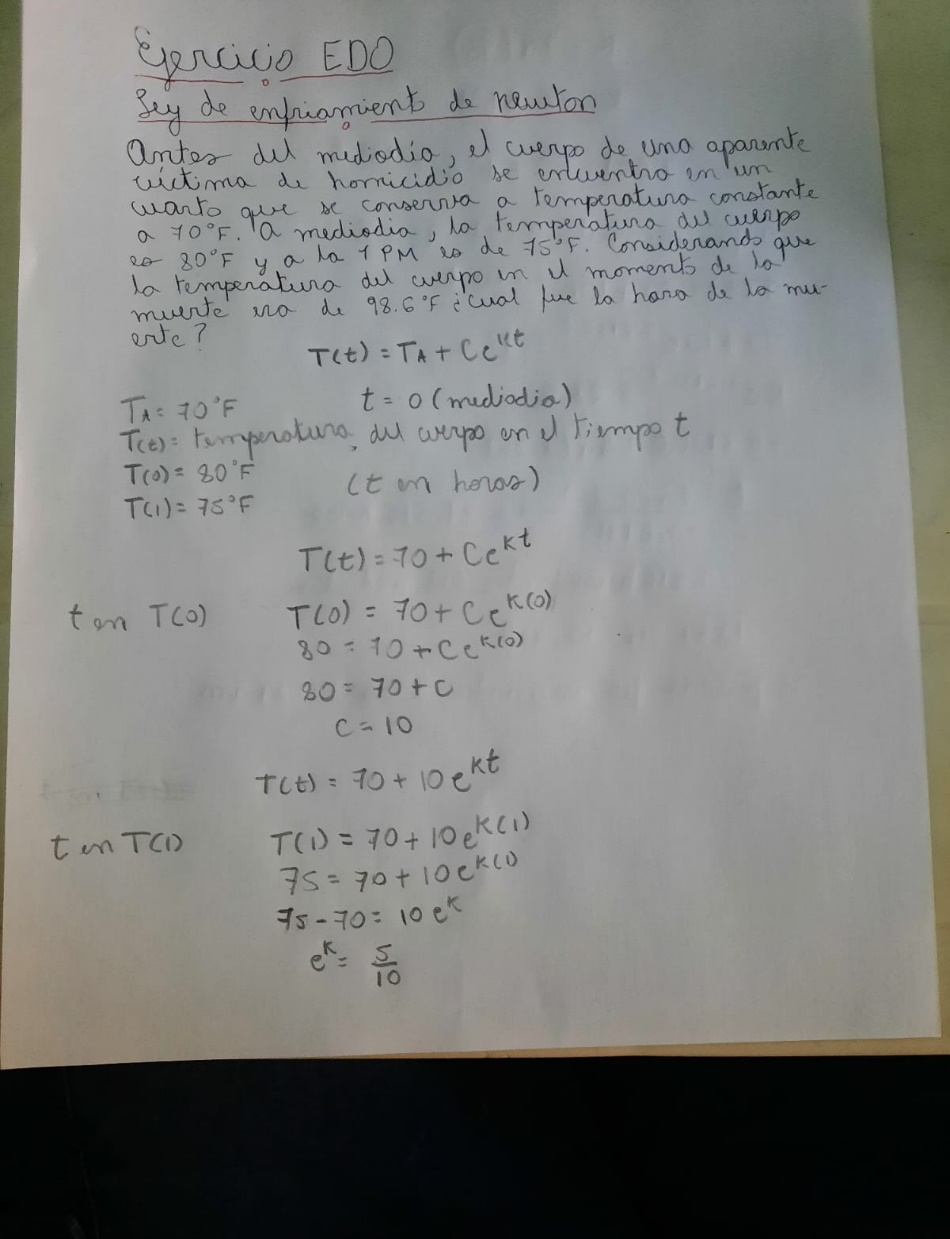 Ejercicio EDO
Ley de enfriamiento de newton
Antes del mediodía, el cuerpo de una aparente
víctima de homicidio se encuentra en un
cuarto que se conserva a temperatura constante
a 70°F. a mediodia, la temperatura del cuerpo
es 80°F y a la 1 PM es de 75°F. Considerando que
la temperatura del cuerpo en el momento de la
muerte era de 98.6°F ¿cual fue la hora de la mu-
erte?
T(t) = TA + Ce^{kt}
TA = 70°F t = 0 (mediodia)
T(t) = temperatura del cuerpo en el tiempo t
T(0) = 80°F (t en horas)
T(1) = 75°F
T(t) = 70 + Ce^{kt}
t en T(0) T(0) = 70 + Ce^{k(0)}
80 = 70 + Ce^{k(0)}
80 = 70 + C
C = 10
T(t) = 70 + 10e^{kt}
t en T(1) T(1) = 70 + 10e^{k(1)}
75 = 70 + 10e^{k(1)}
75 - 70 = 10e^{k}
e^{k} = 5/10